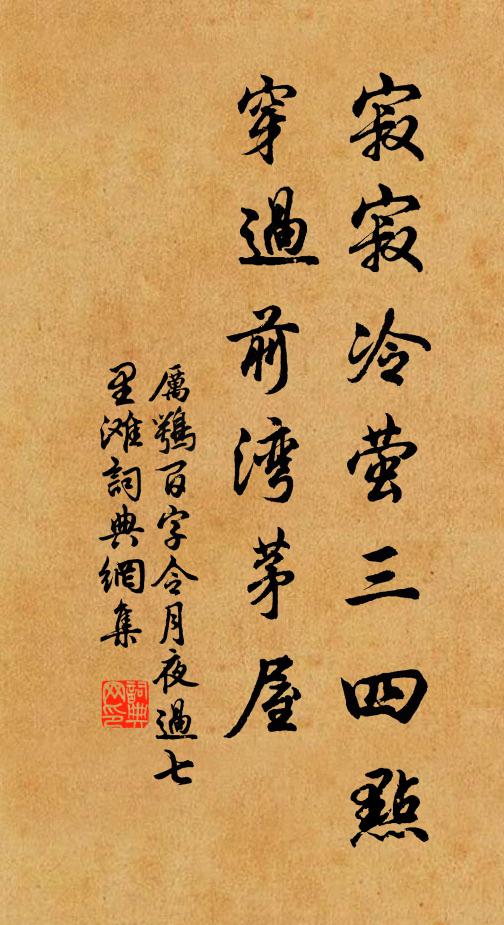 寂寂冷萤三四點
穿過前湾茅屋
厲鶚百字令月夜過七
里滩詞典網集
詞典网印